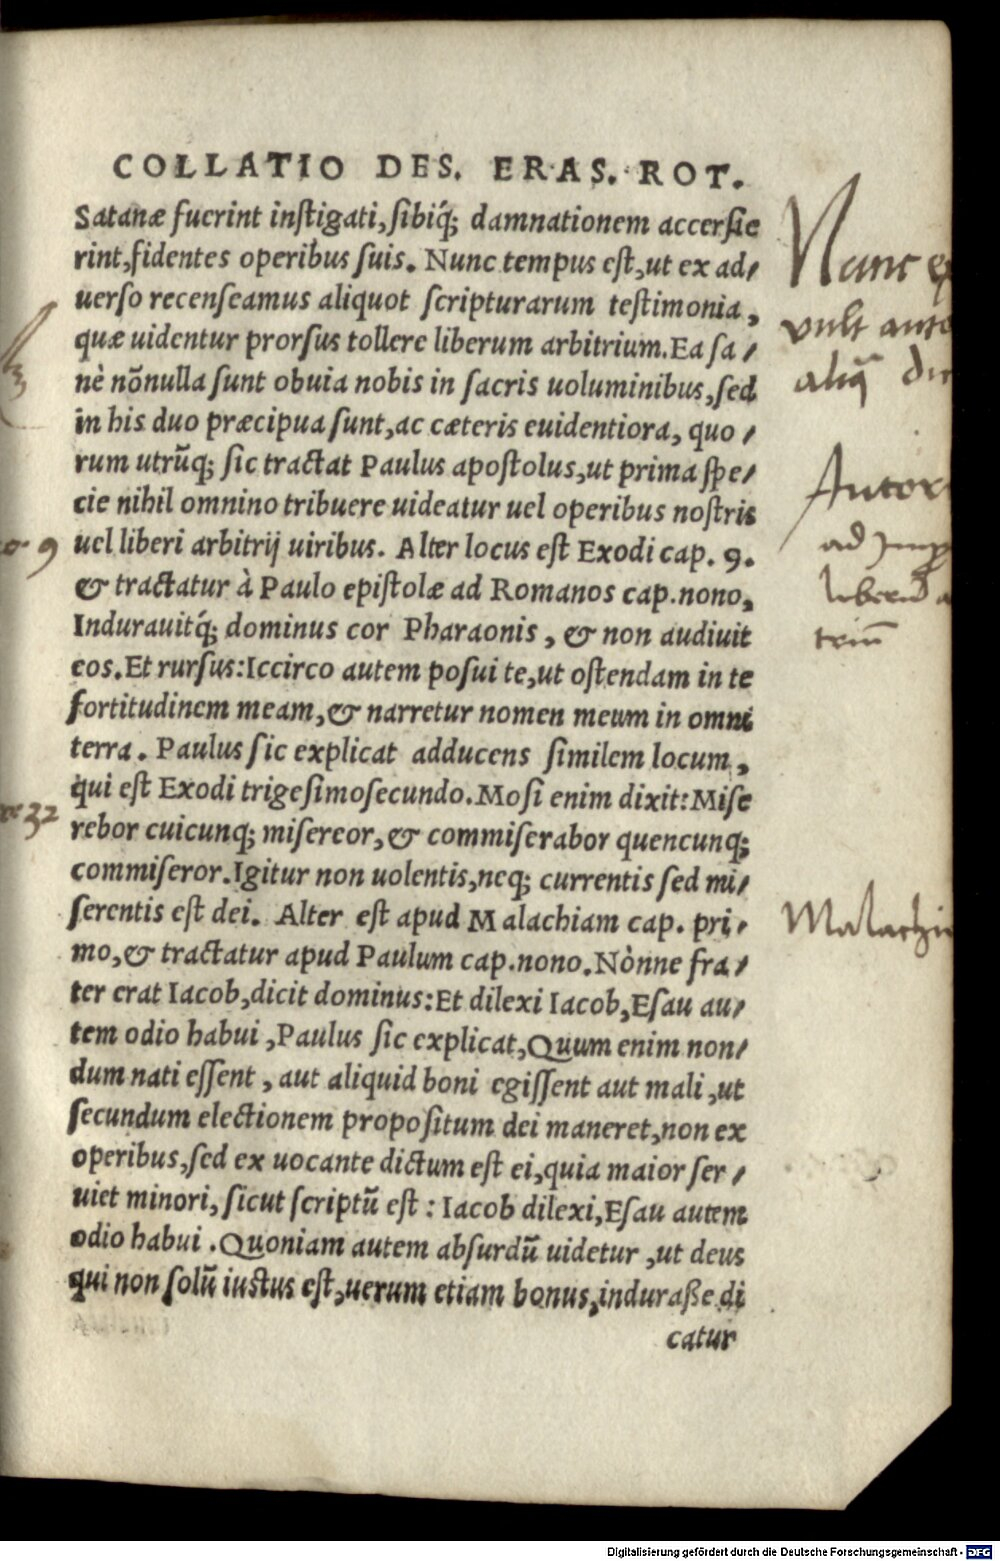 COLLATIO DES. ERAS. ROT.
Satanæ fuerint inſtigati, ſibiq́; damnationem accerſie
rint, fidentes operibus ſuis. Nunc tempus eſt, ut ex ad/
uerſo recenſeamus aliquot ſcripturarum teſtimonia,
quæ uidentur prorſus tollere liberum arbitrium. Ea ſa/
nè nōnulla ſunt obuia nobis in ſacris uoluminibus, ſed
in his duo præcipua ſunt, ac cæteris euidentiora, quo/
rum utrūq; ſic tractat Paulus apoſtolus, ut prima ſpe/
cie nihil omnino tribuere uideatur uel operibus noſtris
uel liberi arbitrij uiribus. Alter locus eſt Exodi cap. 9.
& tractatur à Paulo epiſtolæ ad Romanos cap. nono,
Indurauitq́; dominus cor Pharaonis, & non audiuit
eos. Et rurſus: Iccirco autem poſui te, ut oſtendam in te
fortitudinem meam, & narretur nomen meum in omni
terra. Paulus ſic explicat adducens ſimilem locum,
qui eſt Exodi trigeſimoſecundo. Moſi enim dixit: Miſe
rebor cuicunq; miſereor, & commiſerabor quencunq;
commiſeror. Igitur non uolentis, neq; currentis ſed mi/
ſerentis eſt dei. Alter eſt apud Malachiam cap. pri/
mo, & tractatur apud Paulum cap. nono. Nònne fra/
ter erat Iacob, dicit dominus: Et dilexi Iacob, Eſau au/
tem odio habui, Paulus ſic explicat, Quum enim non/
dum nati eſſent, aut aliquid boni egiſſent aut mali, ut
ſecundum electionem propoſitum dei maneret, non ex
operibus, ſed ex uocante dictum eſt ei, quia maior ſer/
uiet minori, ſicut ſcriptū eſt: Iacob dilexi, Eſau autem
odio habui. Quoniam autem abſurdū uidetur, ut deus
qui non ſolū iuſtus eſt, uerum etiam bonus, induraße di
catur
Nunc
vult
aliq̄
Autor
ad
liberū
triū
Malachi
9
32
Digitalisierung gefördert durch die Deutsche Forschungsgemeinschaft - DFG